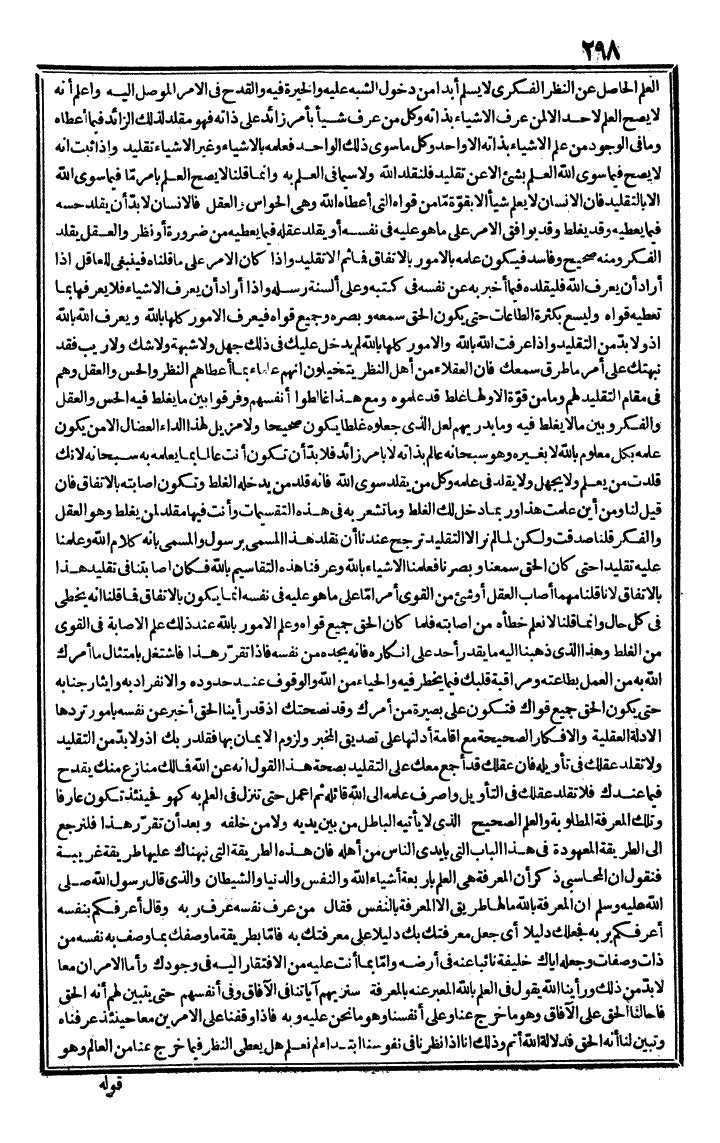 ٢٩٨
العلم الحاصل عن النظر الفكرى لا يسلم أبدا من دخول الشبه عليه والحيرة فيه والقدح فى الامر الموصل اليه واعلم أنه
لا يصح العلم لاحد الالمن عرف الاشياء بذاته وكل من عرف شيأ بأمر زائد على ذاته فهو مقلد لذلك الزائد فيما أعطاه
وما فى الوجود من علم الاشياء بذاته الا واحد وكل ما سوى ذلك الواحد فعلمه بالاشياء وغير الاشياء تقليد واذا ثبت انه
لا يصح فيما سوى الله العلم بشئ الا عن تقليد فلنقلد الله ولا سيما فى العلم به وانما قلنا لا يصح العلم بامر ما فيما سوى الله
الا بالتقليد فان الانسان لا يعلم شيأ الا بقوة مّا من قواه التى أعطاه الله وهى الحواس والعقل فالانسان لا بدّ أن يقلد حسه
فيما يعطيه وقد يغلط وقد يوافق الامر على ما هو عليه فى نفسه أو يقلد عقله فيما يعطيه من ضرورة أو نظر والعقل يقلد
الفكر ومنه صحيح وفاسد فيكون علمه بالامور بالاتفاق فما ثم الا تقليد واذا كان الامر على ما قلناه فينبغى للعاقل اذا
أراد أن يعرف الله فليقلده فيما أخبر به عن نفسه فى كتبه وعلى ألسنة رسله واذا أراد أن يعرف الاشياء فلا يعرفها بما
تعطيه قواه وليسع بكثرة الطاعات حتى يكون الحق سمعه وبصره وجميع قواه فيعرف الامور كلها بالله ويعرف الله بالله
اذ ولا بدّ من التقليد واذا عرفت الله بالله والامور كلها بالله لم يدخل عليك فى ذلك جهل ولا شبهة ولا شك ولا ريب فقد
نبهتك على أمر ما طرق سمعك فان العقلاء من أهل النظر يتخيلون انهم علماء بما أعطاهم النظر والحس والعقل وهم
فى مقام التقليد لهم وما من قوّة الا ولها غلط قد علموه ومع هذا غالطوا أنفسهم وفرقوا بين ما يغلط فيه الحس والعقل
والفكر وبين ما لا يغلط فيه وما يدريهم لعل الذى جعلوه غلطا يكون صحيحا ولا مزيل لهذا الداء العضال الا من يكون
علمه بكل معلوم بالله لا بغيره وهو سبحانه عالم بذاته لا بامر زائد فلا بدّ أن تكون أنت عالما بما يعلمه به سبحانه لانك
قلدت من يعلم ولا يجهل ولا يقلد فى علمه وكل من يقلد سوى الله فانه قلد من يدخله الغلط وتكون اصابته بالاتفاق فان
قيل لنا ومن أين علمت هذا وربما دخل لك الغلط وما تشعر به فى هذه التقسيمات وأنت فيها مقلد لمن يغلط وهو العقل
والفكر قلنا صدقت ولكن لما لم نر الا التقليد ترجح عندنا أن نقلد هذا المسمى برسول والمسمى بانه كلام الله وعلمنا
عليه تقليدا حتى كان الحق سمعنا وبصرنا فعلمنا الاشياء بالله وعرفنا هذه التقاسيم بالله فكان اصابتنا فى تقليد هذا
بالاتفاق لانا قلنا مهما أصاب العقل أو شئ من القوى أمرا مّا على ما هو عليه فى نفسه انما يكون بالاتفاق فما قلنا انه يخطى
فى كل حال وانما قلنا لا نعلم خطأه من اصابته فلما كان الحق جميع قواه وعلم الامور بالله عند ذلك علم الاصابة فى القوى
من الغلط وهذا الذى ذهبنا اليه ما يقدر أحد على انكاره فانه يجده من نفسه فاذا تقرّر هذا فاشتغل بامتثال ما أمرك
الله به من العمل بطاعته ومراقبة قلبك فيما يخطر فيه والحياء من الله والوقوف عند حدوده والانفراد به وايثار جنابه
حتى يكون الحق جميع قواك فتكون على بصيرة من أمرك وقد نصحتك اذ قد رأينا الحق أخبر عن نفسه بامور تردها
الادلة العقلية والافكار الصحيحة مع اقامة أدلتها على تصديق المخبر ولزوم الايمان بها فقلد ربك اذ ولا بدّ من التقليد
ولا تقلد عقلك فى تأويله فان عقلك قد أجمع معك على التقليد بصحة هذا القول انه عن الله فما لك منازع منك يقدح
فيما عندك فلا تقلد عقلك فى التأويل واصرف علمه الى الله قائله ثم اعمل حتى تنزل فى العلم به كهو فحينئذ تكون عارفا
وتلك المعرفة المطلوبة والعلم الصحيح الذى لا يأتيه الباطل من بين يديه ولا من خلفه وبعد أن تقرّر هذا فلنرجع
الى الطريقة المعهودة فى هذا الباب التى بايدى الناس من أهله فان هذه الطريقة التى نبهناك عليها طريقة غريبة
فنقول ان المحاسبى ذكر أن المعرفة هى العلم باربعة أشياء الله والنفس والدنيا والشيطان والذى قال رسول الله صلى
الله عليه وسلم ان المعرفة بالله ما لها طريق الا المعرفة بالنفس فقال من عرف نفسه عرف ربه وقال أعرفكم بنفسه
أعرفكم بربه فجعلك دليلا أى جعل معرفتك بك دليلا على معرفتك به فامّا بطريقة ما وصفك بما وصف به نفسه من
ذات وصفات وجعله اياك خليفة نائبا عنه فى أرضه وامّا بما أنت عليه من الافتقار اليه فى وجودك وأما الامران معا
لا بدّ من ذلك ورأينا الله يقول فى العلم بالله المعبر عنه بالمعرفة سنريهم آياتنا فى الآفاق وفى أنفسهم حتى يتبين لهم أنه الحق
فاحالنا الحق على الآفاق وهو ما خرج عنا وعلى أنفسنا وهو ما نحن عليه وبه فاذا وقفنا على الامرين معا حينئذ عرفناه
وتبين لنا أنه الحق فدلالة الله أتم وذلك انا اذا نظرنا فى نفوسنا ابتداء لم نعلم هل يعطى النظر فيما خرج عنا من العالم وهو
قوله